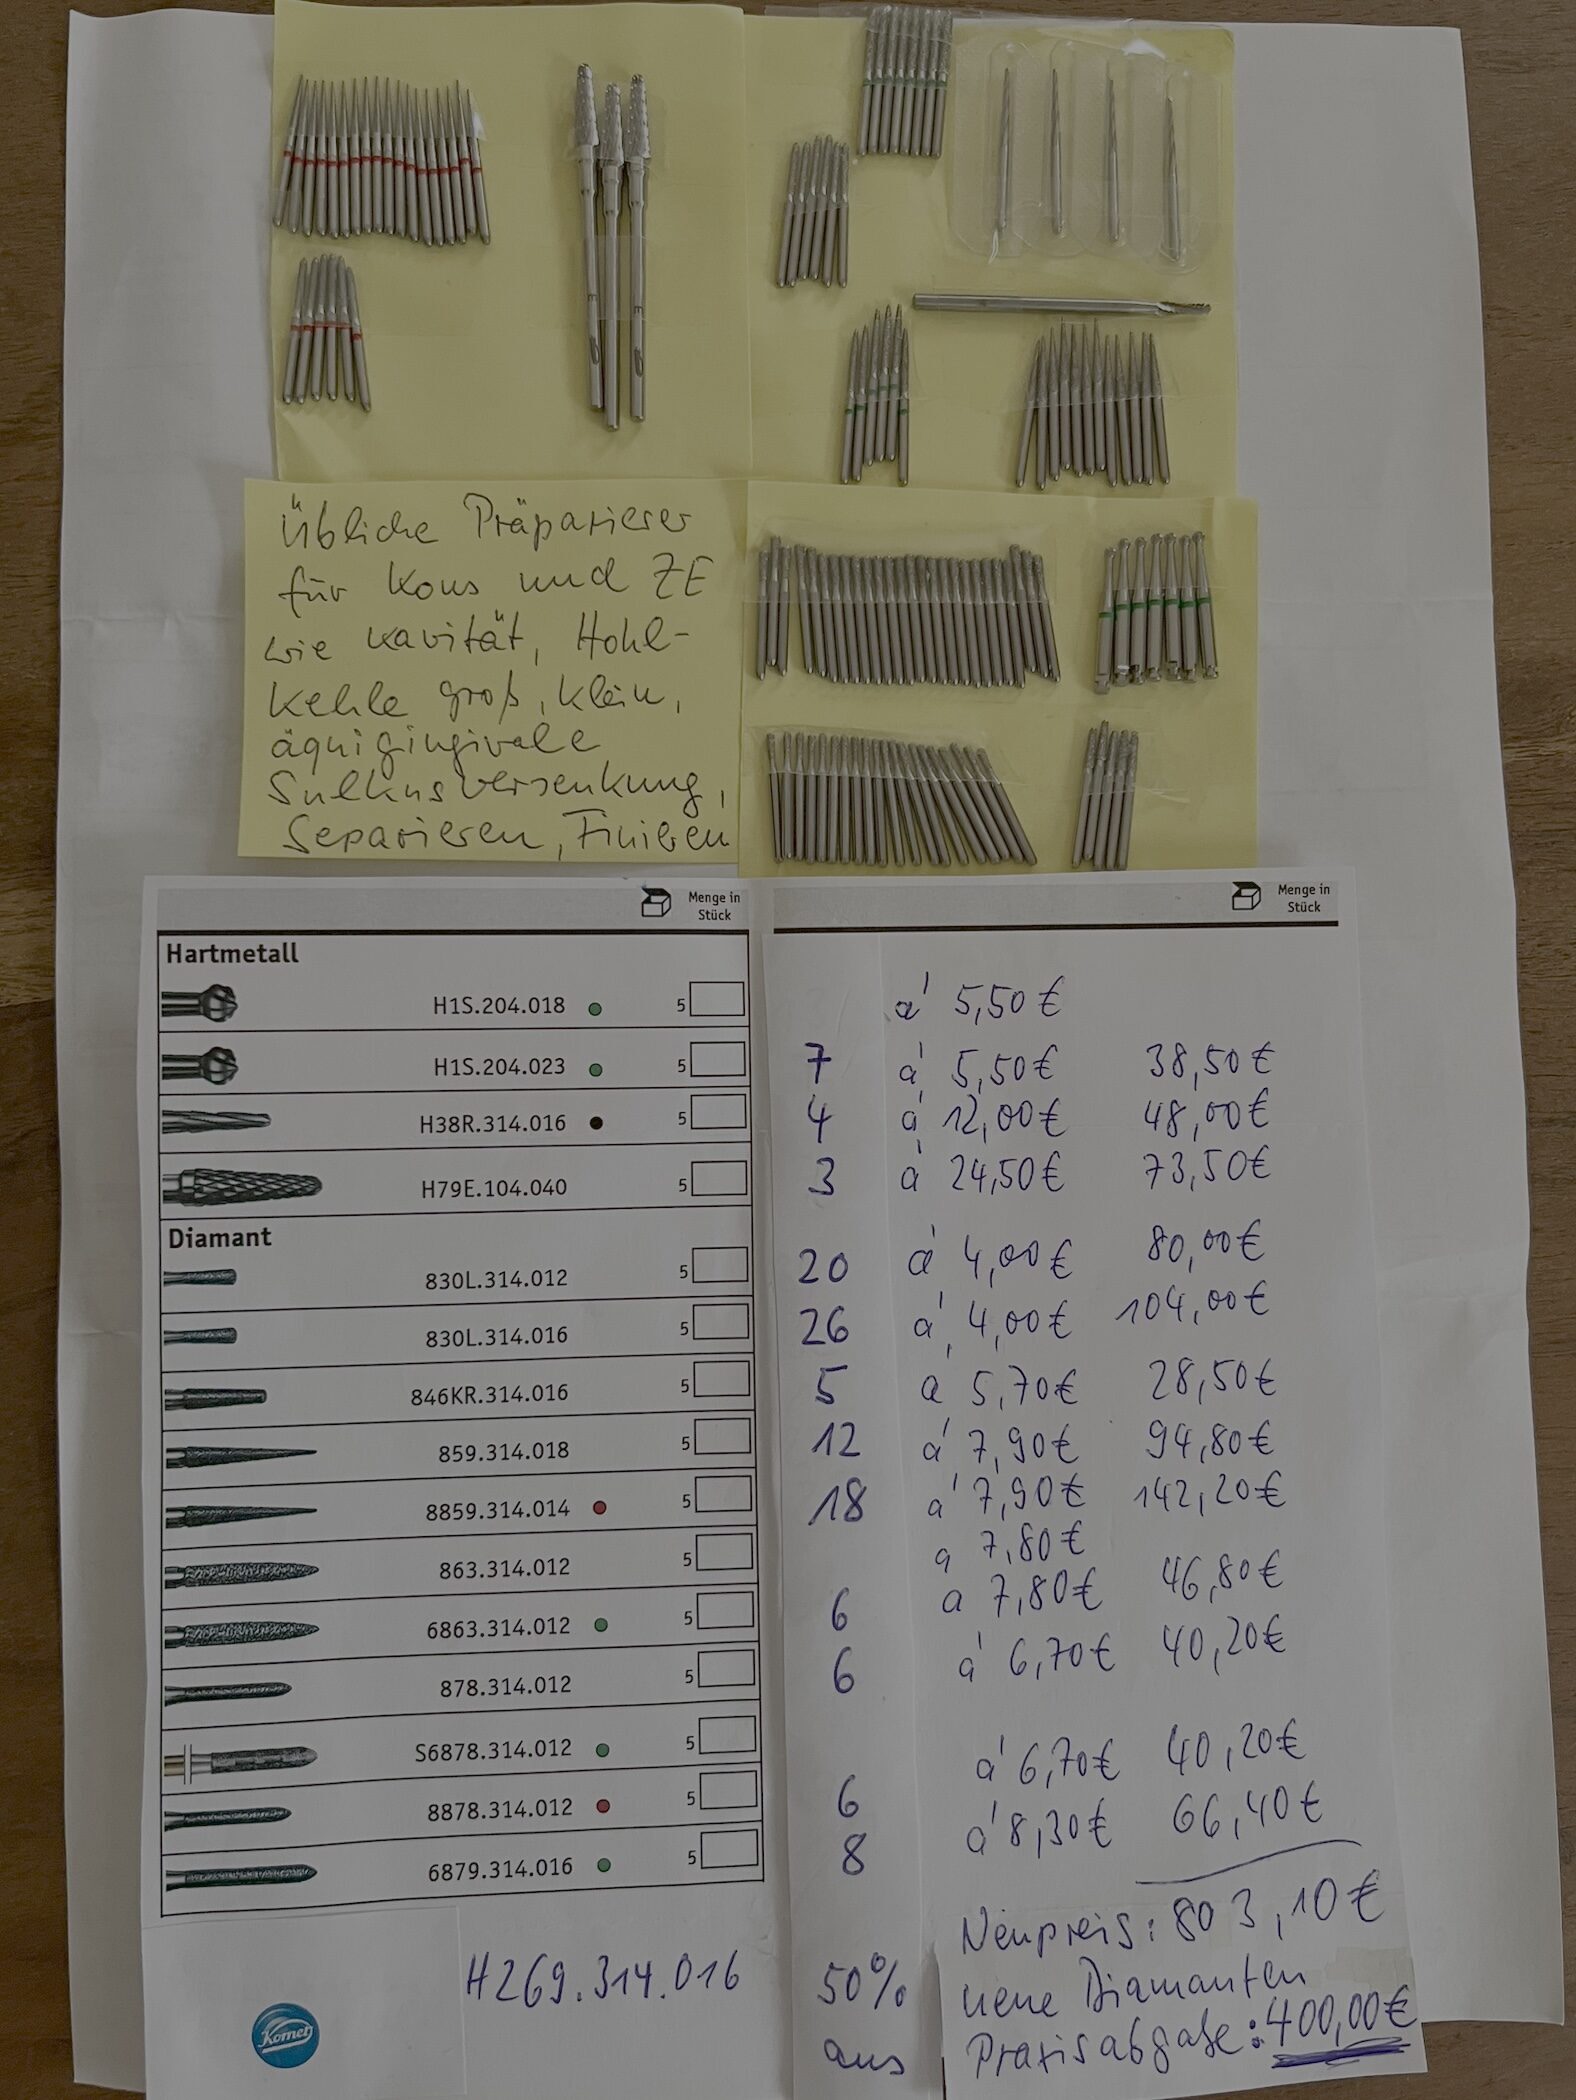 Übliche Präparierer
für Kons und ZE
wie Kavität, Hohl-
kehle groß, klein,
äquigingivale
Sulkusversenkung,
Separieren, Finieren
Menge in
Stück
Menge in
Stück
Hartmetall
H1S.204.018 5 á 5,50 €
H1S.204.023 5 7 á 5,50 € 38,50 €
H38R.314.016 5 4 á 12,00 € 48,00 €
H79E.104.040 5 3 á 24,50 € 73,50 €
Diamant
830L.314.012 5 20 á 4,00 € 80,00 €
830L.314.016 5 26 á 4,00 € 104,00 €
846KR.314.016 5 5 a 5,70 € 28,50 €
859.314.018 5 12 á 7,90 € 94,80 €
8859.314.014 5 18 á 7,90 € 142,20 €
863.314.012 5 a 7,80 €
6863.314.012 5 6 a 7,80 € 46,80 €
878.314.012 5 6 á 6,70 € 40,20 €
S6878.314.012 5
8878.314.012 5 6 á 6,70 € 40,20 €
6879.314.016 5 8 á 8,30 € 66,40 €
Neupreis: 803,10 €
H269.314.016 50% neue Diamanten
aus Praxisabgabe: 400,00 €
Komet